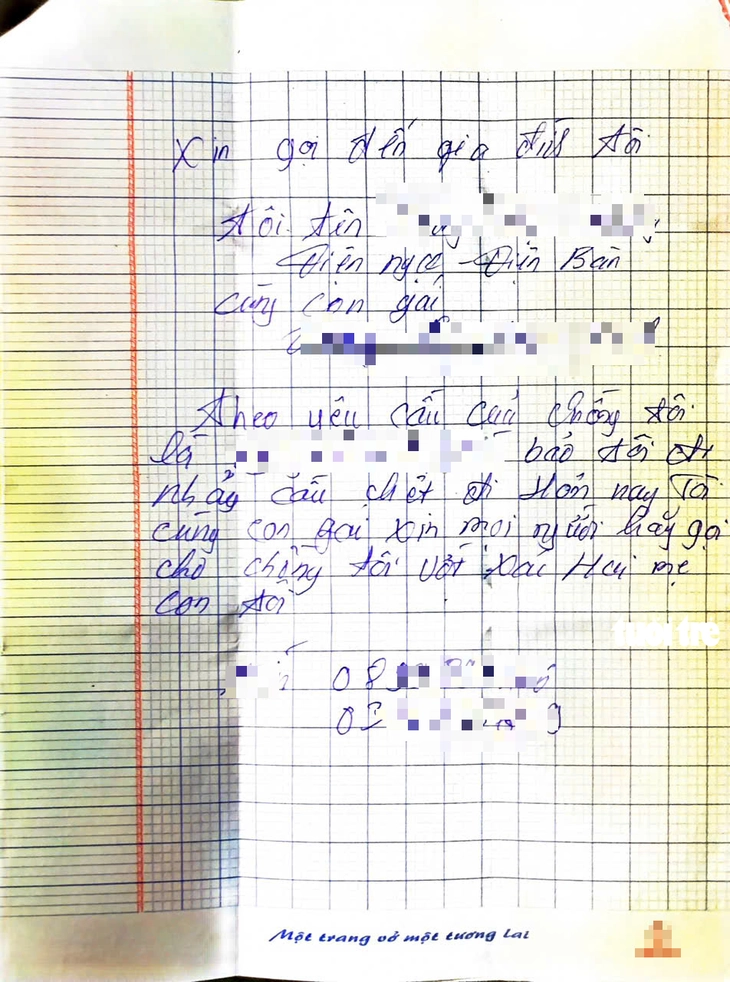 Xin gọi đến gia đình tôi
tôi tên
Điện ngọc - Điện Bàn
cùng con gái
Theo yêu cầu của chồng tôi
là bảo tôi đi
nhảy cầu chết đi Hôm nay Tôi
cùng con gái xin mọi người hãy gọi
cho chồng tôi vớt xác Hai mẹ
con tôi
tuổi trẻ
08
03
Một trang vở một tương lai